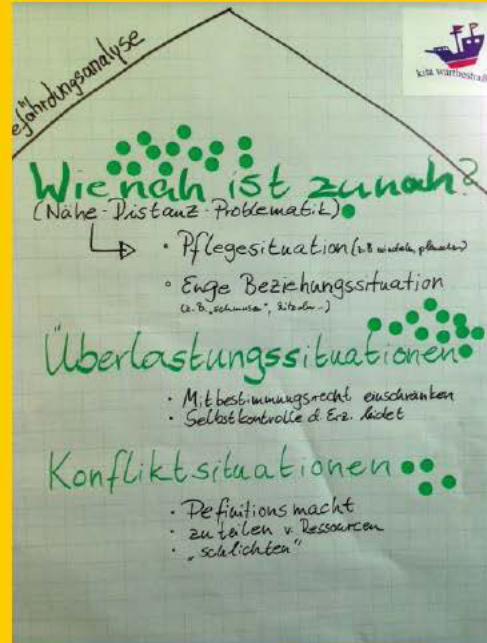 Gefährdungsanalyse
kita wartbestraße
Wie nah ist zu nah?
(Nähe-Distanz-Problematik)
· Pflegesituation (z.B. wickeln,
· Enge Beziehungssituation
(z.B. „schmusen",
Überlastungssituationen
· Mitbestimmungsrecht einschränken
· Selbstkontrolle d. Erz. leidet
Konfliktsituationen
· Definitionsmacht
· zuteilen v. Ressourcen
· „schlichten"